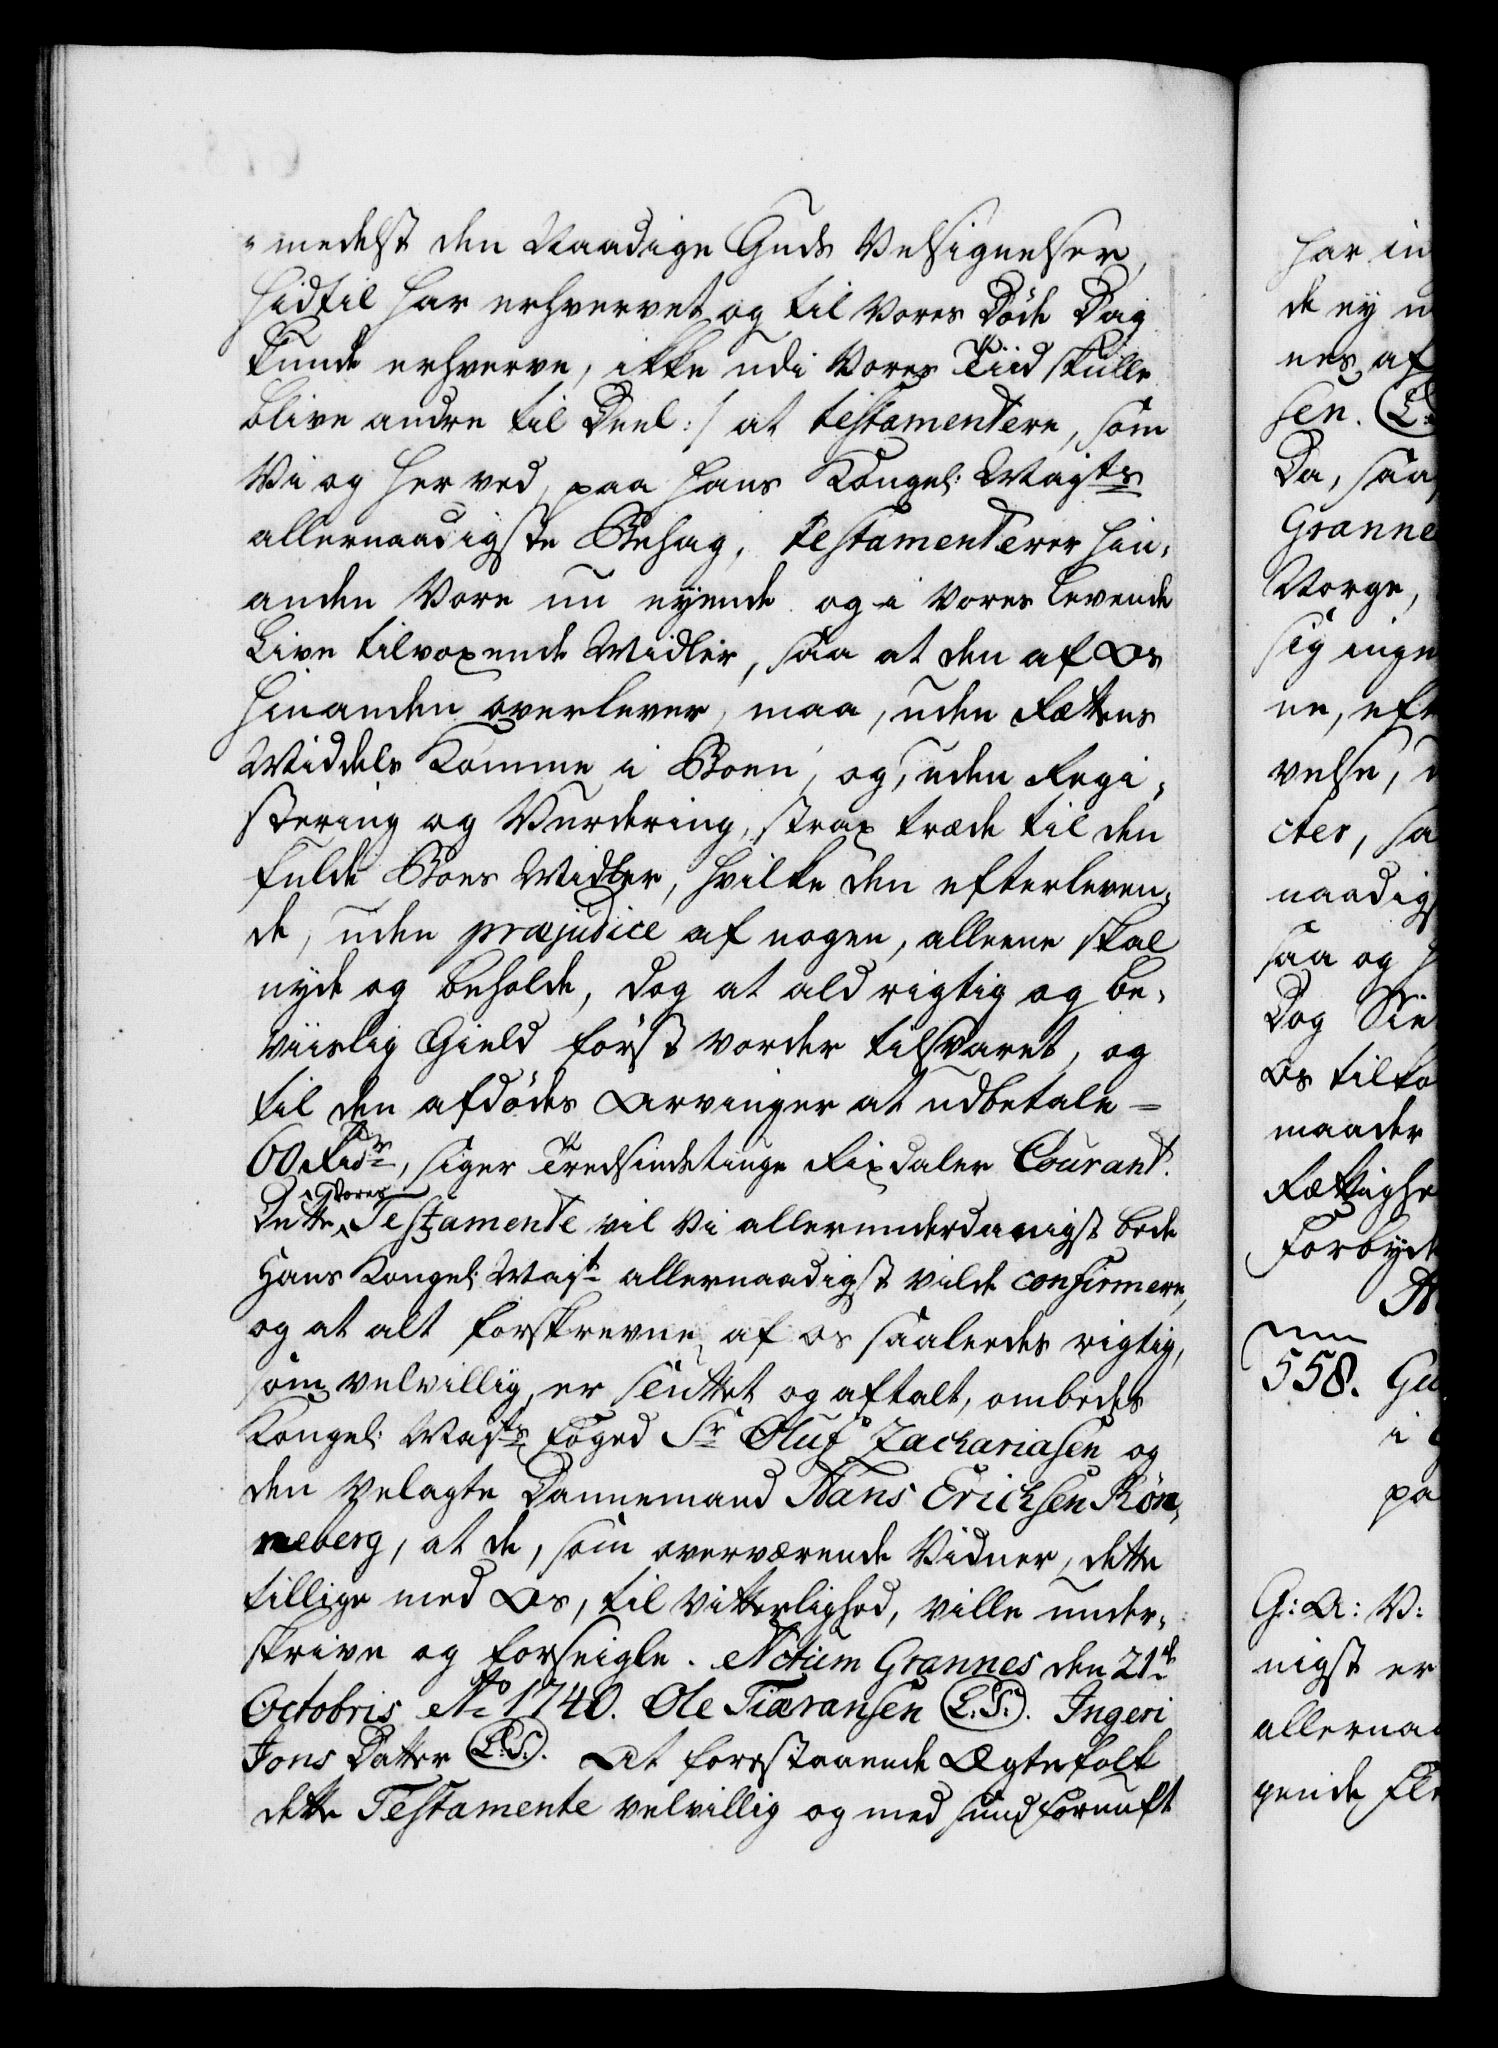 "medelst den Naadige Guds Velsignelser,
hidtil har erhvervet og til Vores Döde Dag
kunde erhverve, ikke udi Vores Tiid skulle
blive andre til Deel :/ at testamentere, som
Vi og her ved, paa Hans Kongel: Mayts
allernaadigste Behag, testamenterer hin,
anden Vore nu eyende og i Vores levende
Live tilvoxende Midler, saa at den af Os
hinanden overlever, maa, uden Rettens
Middels Komme i Boen, og, uden Regi,
stering og Vurdering, strax træde til den
fulde Boes Midler, hvilke den efterleven,
de, uden præjudice af nogen, alleene skal
nyde og beholde, dog at ald rigtig og be,
viislig Gield först vorder tilsvaret, og
til den afdödes Arvinger at udbetale =
60 Rdr, siger Tredsindstiuge Rixdaler Courant.
Dette ^Vores Testamente vil Vi allerunderdanigst bede
Hans Kongel: Mayt allernaadigst vilde confirmere,
og at alt forskrevne af os saaledes rigtig,
som velvillig, er sluttet og aftalt, ombedes
Kongel: Mayts Foged Sr Oluf Zachariasen og
den Velagte Dannemand Hans Ericksen Rön,
neberg, at de, som overværende Vidner, dette
tillige med Os, til Vitterlighed, ville under,
skrive og forseigle. Actum Grannes den 21de
Octobris Ao 1740. Ole Tiæransen (L.S.). Ingeri
Jons Datter (L.S.). At forestaaende Ægtefolk
dette Testamente velvillig og med sund Fornuft
har in
de ey u
nes af
sen. L.
Da, saa
Granne
Norge,
sig inge
ne, eft
velse,
cter, sa
naadigs
saa og h
Dog Sie
Os tilko
maader
Rettighe
Forbyde
558. Gu
i
pa
G: A: V:
nigst er
allernaa
gende El